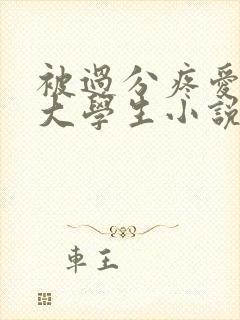 被過分疼愛
大學生小說
車王